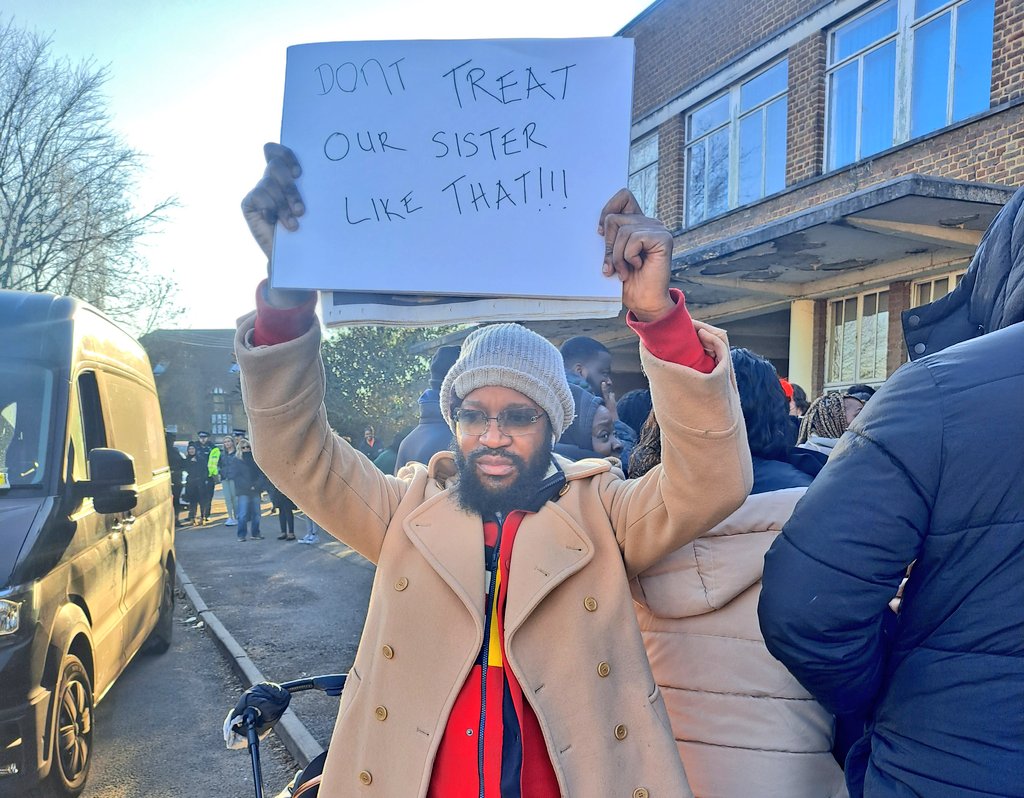 DONT TREAT
OUR SISTER
LIKE THAT!!!